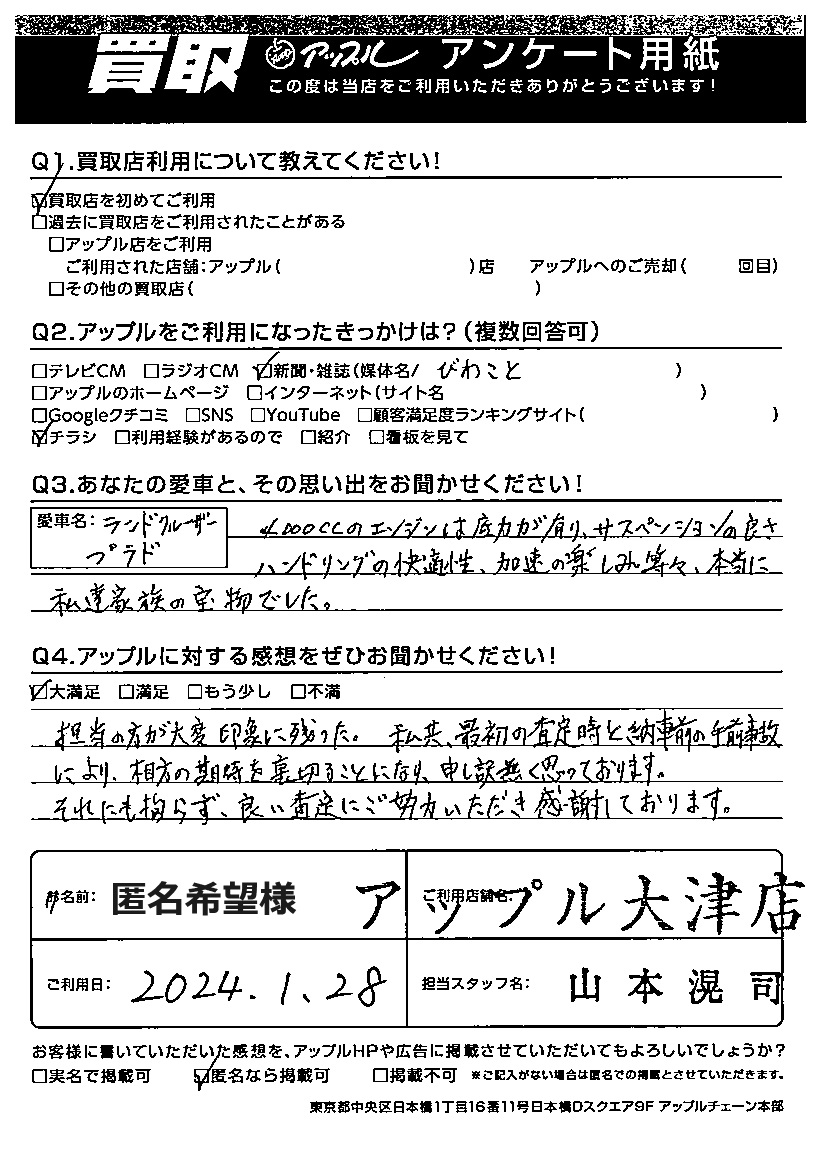 買取 アップル アンケート用紙
この度は当店をご利用いただきありがとうございます!
Q1.買取店利用について教えてください!
☑買取店を初めてご利用
□過去に買取店をご利用されたことがある
□アップル店をご利用
ご利用された店舗:アップル( )店 アップルへのご売却( 回目)
□その他の買取店( )
Q2.アップルをご利用になったきっかけは?(複数回答可)
□テレビCM □ラジオCM ☑新聞・雑誌(媒体名/ びわこと )
□アップルのホームページ □インターネット(サイト名 )
□Googleクチコミ □SNS □YouTube □顧客満足度ランキングサイト( )
☑チラシ □利用経験があるので □紹介 □看板を見て
Q3.あなたの愛車と、その思い出をお聞かせください!
愛車名: ランドクルーザー
プラド
4000ccのエンジンは底力が有り、サスペンションの良さ
ハンドリングの快適性、加速の楽しみ等々、本当に
私達家族の宝物でした。
Q4.アップルに対する感想をぜひお聞かせください!
☑大満足 □満足 □もう少し □不満
担当の方が大変印象に残った。 私共、最初の査定時と納車前の事故
により、相方の期待を裏切ることになり、申し訳無く思っております。
それにも拘らず、良い査定にご努力いただき感謝しております。
お名前: 匿名希望様
ご利用店舗名: アップル大津店
ご利用日: 2024.1.28
担当スタッフ名: 山本滉司
お客様に書いていただいた感想を、アップルHPや広告に掲載させていただいてもよろしいでしょうか?
□実名で掲載可 ☑匿名なら掲載可 □掲載不可 ※ご記入がない場合は匿名での掲載とさせていただきます。
東京都中央区日本橋1丁目16番11号日本橋Dスクエア9F アップルチェーン本部